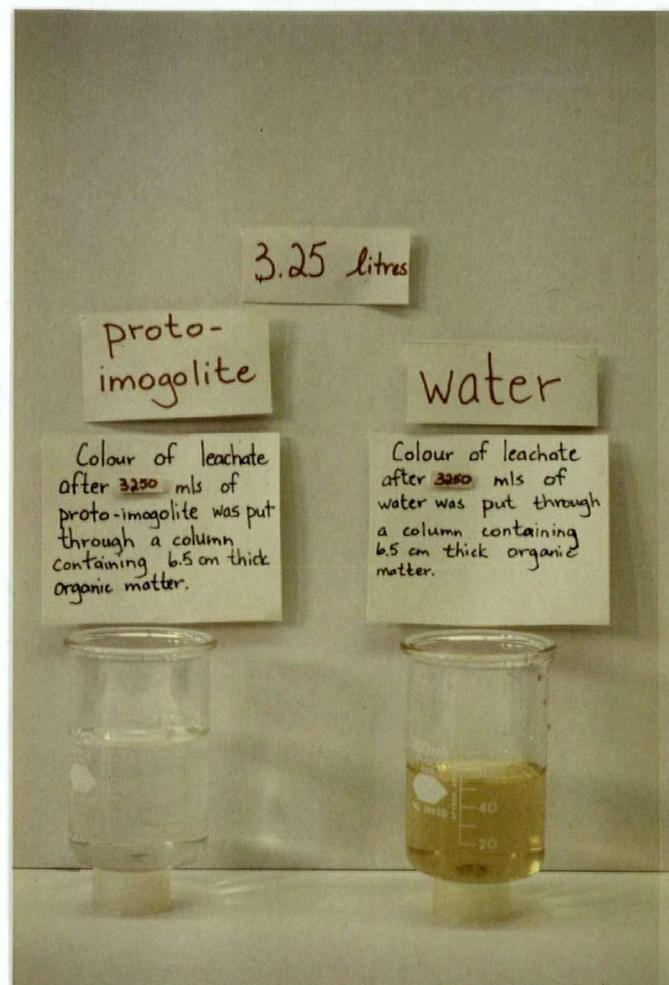 3.25 litres
proto-
imogolite
Colour of leachate
after 3250 mls of
proto-imogolite was put
through a column
containing 6.5 cm thick
organic matter.
water
Colour of leachate
after 3250 mls of
water was put through
a column containing
6.5 cm thick organic
matter.
40
20